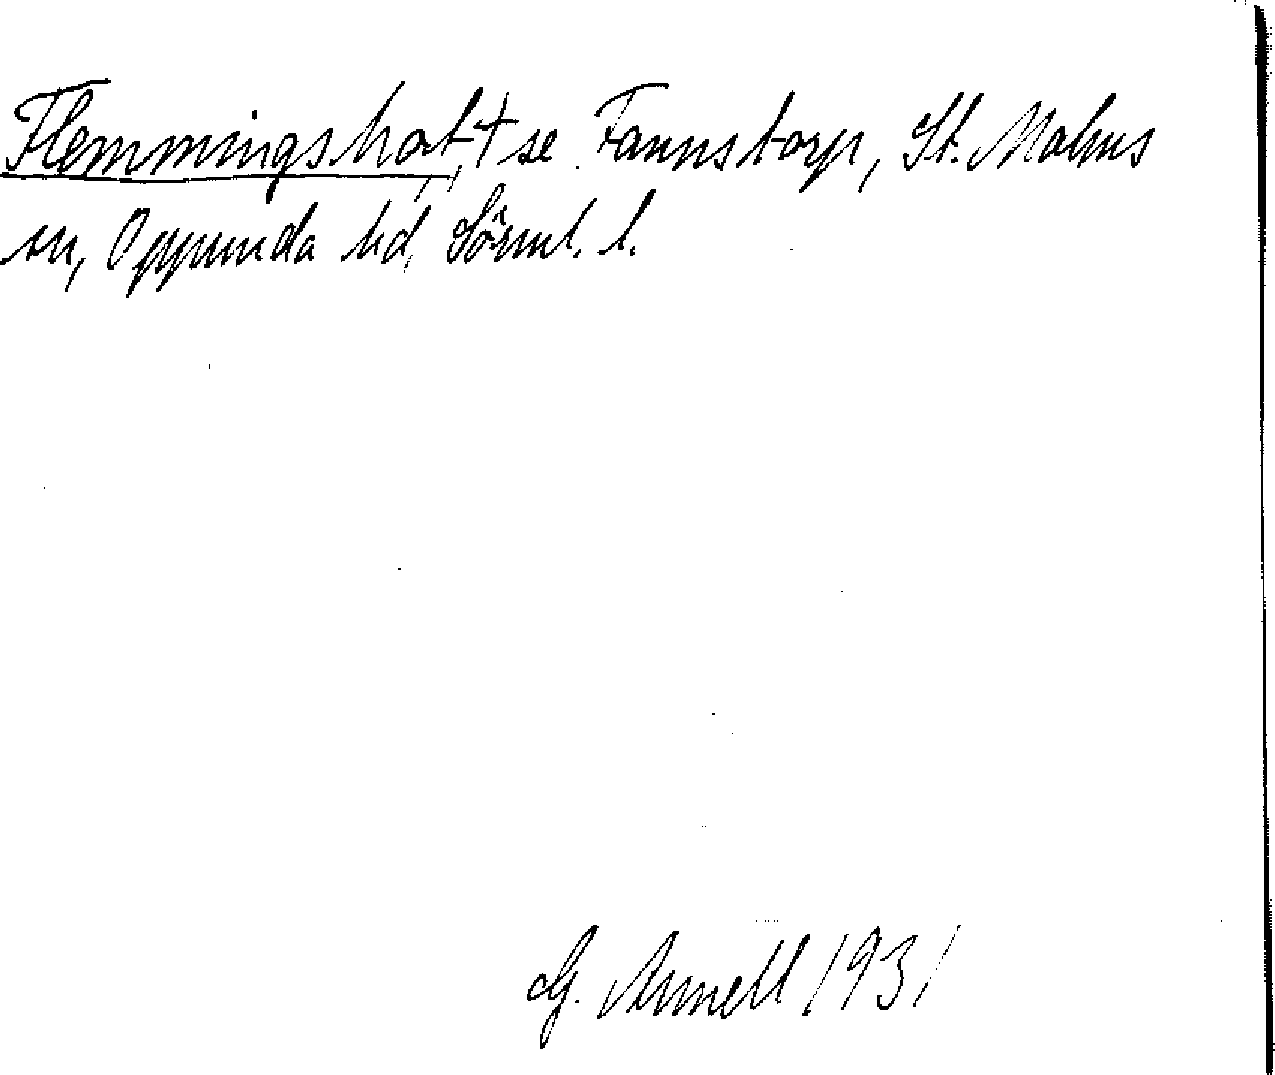 Flemmingshof, † se Fannstorp, St. Malms
sn, Oppunda hd, Sörml. l.
G. Annell 1931